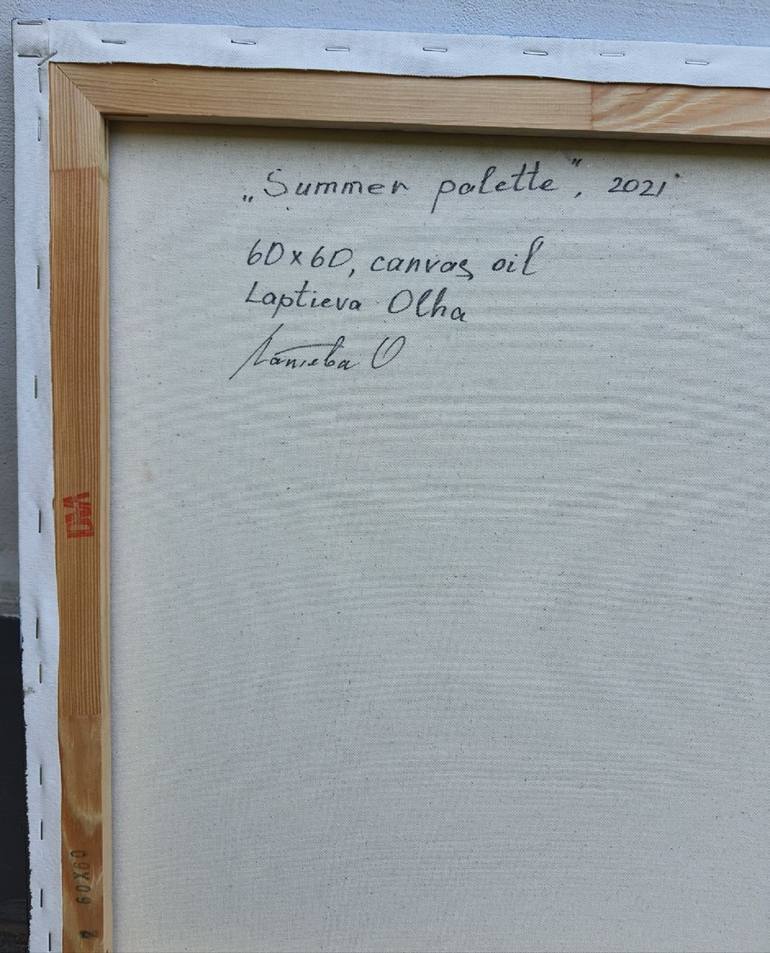 „Summer palette", 2021
60x60, canvas, oil
Laptieva Olha
Лаптєва О
60X60